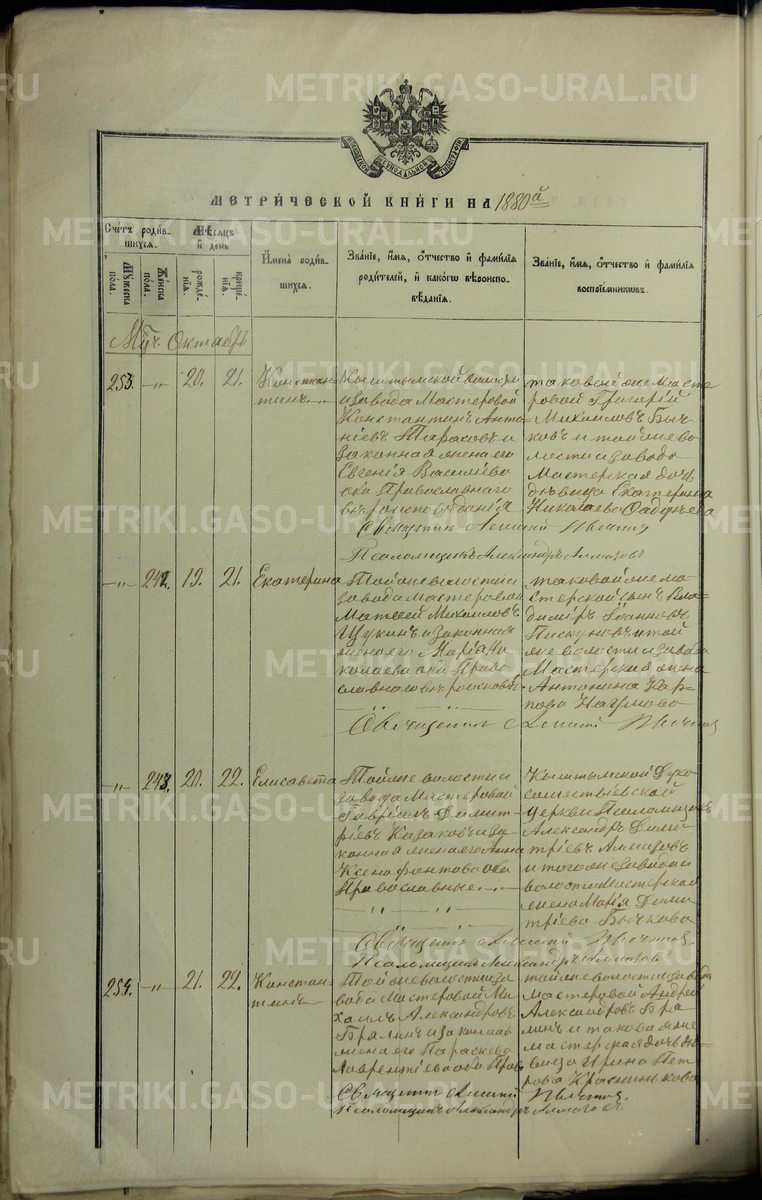 METRIKI.GASO-URAL.RU
МОСКОВСКОЙ СѴНОДАЛЬНОЙ ТИПОГРАФІИ
МЕТРИ́ЧЕСКОЙ КНИ́ГИ НА 1880й
Сче́тъ роди́в-
шихся.
Му́жеска
пола.
Же́нска
пола.
Мѣ́сяцъ
и҆ день
рожде́-
нїя.
креще́-
нїя.
И҆мена̀ роди́в-
шихся.
Зва́нїе, и҆́мя, ѻ҆́тчество и҆ фами́лїѧ
роди́телей, и҆ како́гѡ вѣроиспо-
вѣ́данїѧ.
Зва́нїе, и҆́мя, ѻ҆́тчество и҆ фами́лїѧ
воспрїе́мникѡвъ.
Мц Октябрь
253. -"- 20. 21. Констан-
тинъ
Кыштымской волости
и завода Мастеровой
Константинъ Анто-
ніевъ Тарасовъ и
законная жена его
Евгенія Василіева
оба Православнаго
вѣроисповѣданія
таковой же Масте
ровой Григорій
Михаиловъ Быч-
ковъ и той же во
лости и завода
Мастерская дочь
дѣвица Екатерина
Николаева
Священникъ
Псаломщикъ Александръ Алмазовъ
-"- 242. 19. 21. Екатерина
Той же волости и
завода мастеровой
Матвей Михаиловъ
Щукинъ и законная
жена его Марія Ни
колаева оба Право
славнаго вѣроисповѣд.
таковой же ма-
стерской сынъ Вла-
димиръ Іоанновъ
Пискуновъ и той
же волости и завода
Мастерская жена
Антонина Кар-
пова Наумова
Священникъ
-"- 243. 20. 22. Елисавета
Той же волости и
завода Мастеровой
Гавріилъ Димит-
ріевъ Казаковъ и за
конная жена его Анна
Ксенофонтова оба
Православные.
Кыштымской Духо
сошествіевской
церкви Псаломщикъ
Александръ Дими
тріевъ Алмазовъ
и того же завода и
волости Мастерская
жена Марія Дими
тріева Бычкова
Священникъ
Псаломщикъ Александръ Алмазовъ
254. -"- 21. 22. Констан-
тинъ
Той же волости и за
вода Мастеровой Ми
хаилъ Александровъ
Брялинъ и законная
жена его Параскева
Лаврентіева оба Прав
той же волости и завода
мастеровой Андрей
Александровъ Бря
линъ и таковая же
мастерская дочь дѣ-
вица Ирина Пет
рова Красникова
Священникъ
Псаломщикъ Александръ Алмазовъ